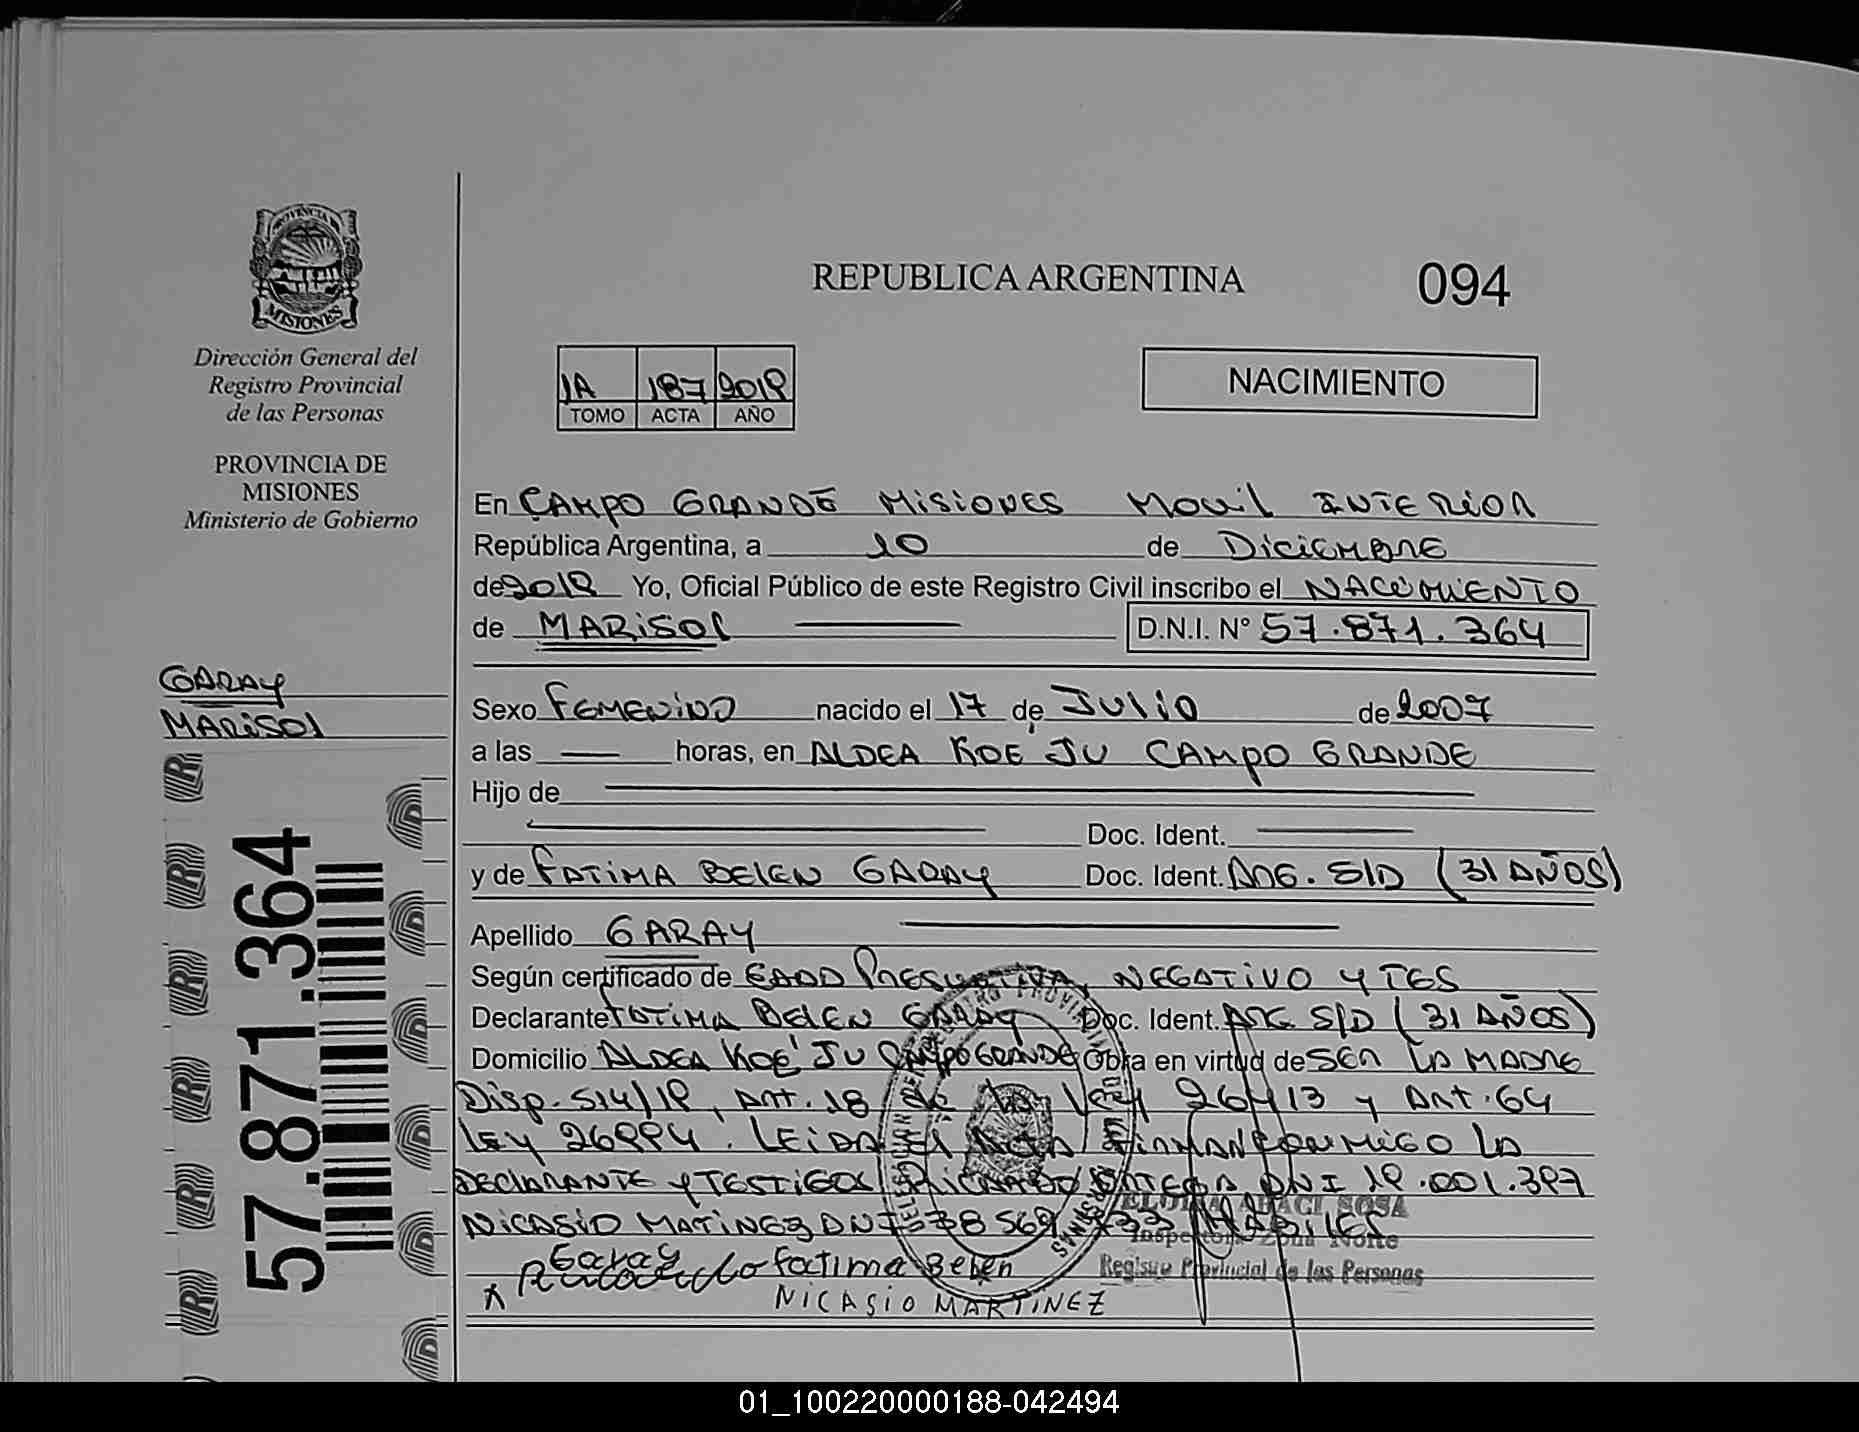 PROVINCIA
MISIONES
Dirección General del
Registro Provincial
de las Personas
PROVINCIA DE
MISIONES
Ministerio de Gobierno
GARAY
MARISOL
57.871.364
REPUBLICA ARGENTINA
094
1A 187 2018
TOMO ACTA AÑO
NACIMIENTO
En CAMPO GRANDE MISIONES MOVIL INTERIOR
República Argentina, a 10 de DICIEMBRE
de 2018 Yo, Oficial Público de este Registro Civil inscribo el NACIMIENTO
de MARISOL D.N.I. N° 57.871.364
Sexo FEMENINO nacido el 17 de JULIO de 2007
a las horas, en ALDEA KOE JU CAMPO GRANDE
Hijo de
Doc. Ident.
y de FATIMA BELEN GARAY Doc. Ident. ARG. S/D (31 AÑOS)
Apellido GARAY
Según certificado de EDAD PRESUNTIVA, NEGATIVO Y TES
Declarante FATIMA BELEN GARAY Doc. Ident. ARG S/D (31 AÑOS)
Domicilio ALDEA KOE' JU CAMPO GRANDE Obra en virtud de SER LA MADRE
Disp. 514/18, Art. 18 de la Ley 26413 y Art. 64
LEY 26994. LEIDA EL ACTA FIRMAN CONMIGO LA
DECLARANTE Y TESTIGOS RICARDO ORTEGA DNI 18.001.397
NICASIO MATINEZ DNI HABILES
ELOINA SOSA
Inspectora Zona Norte
Registro Provincial de las Personas
Garay Fatima Belen
X
NICASIO MARTINEZ
01_100220000188-042494